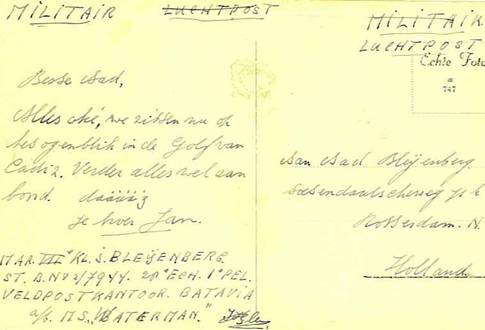 MILITAIR LUCHTPOST
Beste Aad,
Alles oké, we zitten nu op
het ogenblik in de Golf van
Cadiz. Verder alles wel aan
bord. dààààg
je broer Jan.
MAR. III° KL. S. BLEIJENBERG
ST. B. No 2/7944. 2e ECH. 1e PEL.
VELDPOSTKANTOOR BATAVIA
a/b M.S. "WATERMAN."
MILITAIR
LUCHTPOST
Echte Foto
747
Aan Aad Bleijenberg
Rotterdam. N.
Holland